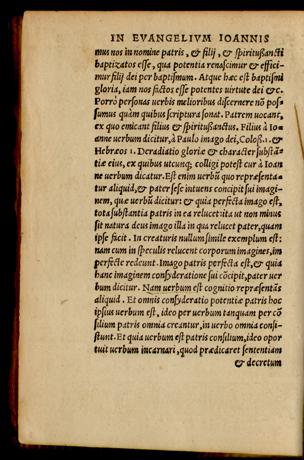 IN EVANGELIVM IOANNIS
mus nos in nomine patris, & filij, & spiritussancti
baptizatos esse, qua potentia renascimur & effici-
mur filij dei per baptismum. Atque hæc est baptismi
gloria, iam nos factos esse potentes virtute dei &c.
Porrò personas verbis melioribus discernere nõ pos-
sumus quàm quibus scriptura sonat. Patrem vocant,
ex quo emicant filius & spiritussanctus. Filius à Io-
anne verbum dicitur, à Paulo imago dei, Coloß.1. &
Hebræos 1. De radiatio gloriæ & character substã-
tiæ eius, ex quibus utcunq; colligi potest cur à Ioan
ne verbum dicatur. Est enim verbũ quo repræsenta-
tur aliquid, & pater sese intuens concipit sui imagi-
nem, quæ verbũ dicitur: & quia perfecta imago est,
tota substantia patris in ea relucet ita ut non minus
sit natura deus imago illa in qua relucet pater, quam
ipse fecit. In creaturis nullum simile exemplum est:
nam cum in speculis relucent corporum imagines, im
perfectè redeunt. Imago patris perfecta est, & quia
hanc imaginem consyderatione sui cõcipit, pater ver
bum dicitur. Nam verbum est cognitio repræsentãs
aliquid. Et omnis consyderatio potentiæ patris hoc
ipsius verbum est, ideo per verbum tanquam per cõ
silium patris omnia creantur, in verbo omnia consi-
stunt. Et quia verbum est patris consilium, ideo opor
tuit verbum incarnari, quod prædicaret sententiam
& decretum